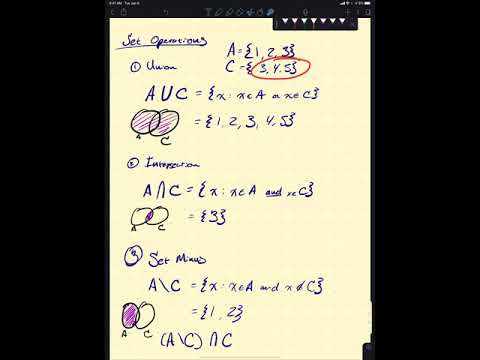 Set Operations
A = {1, 2, 3}
① Union
C = {3, 4, 5}
A ∪ C = {x : x ∈ A or x ∈ C}
= {1, 2, 3, 4, 5}
A C
② Intersection
A ∩ C = {x : x ∈ A and x ∈ C}
= {3}
A C
③ Set Minus
A \ C = {x : x ∈ A and x ∉ C}
= {1, 2}
A C
(A \ C) ∩ C